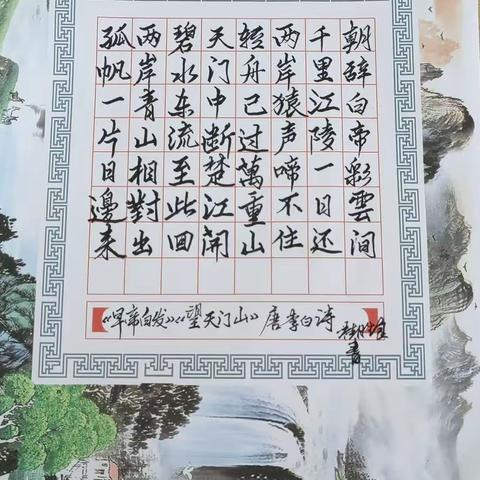 朝辞白帝彩雲间
千里江陵一日还
两岸猿声啼不住
轻舟已过萬重山
天门中断楚江開
碧水东流至此回
两岸青山相對出
孤帆一片日邊来
《早帝白发》《望天门山》 唐李白诗
書